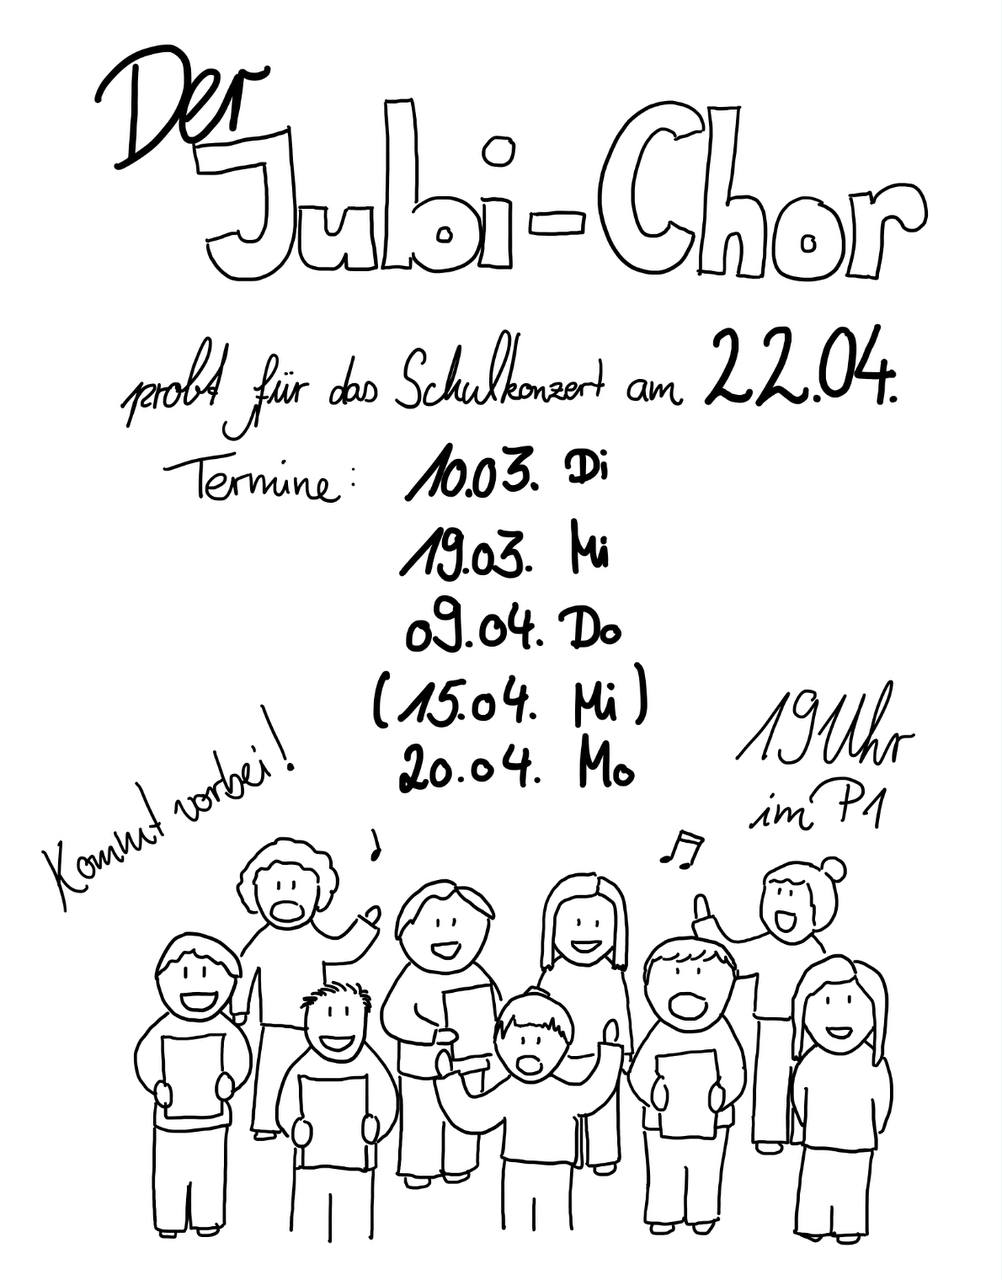 Der
Jubi-Chor
probt für das Schulkonzert am 22.04.
Termine: 10.03. Di
19.03. Mi
09.04. Do
(15.04. Mi)
20.04. Mo
19 Uhr
im P1
Kommt vorbei!